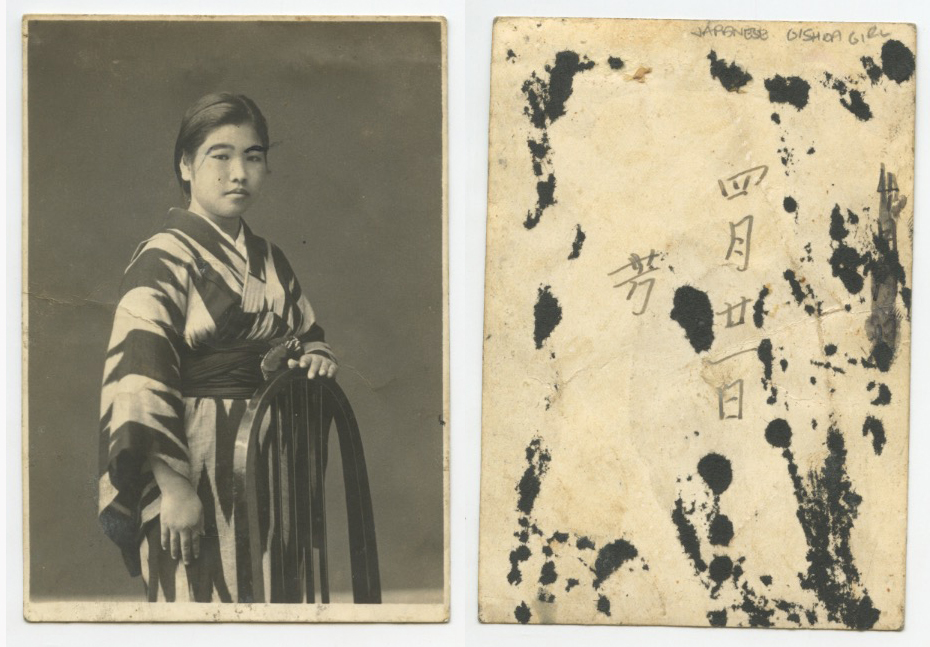 JAPANESE GISHOA GIRL
四月廿一日
芳